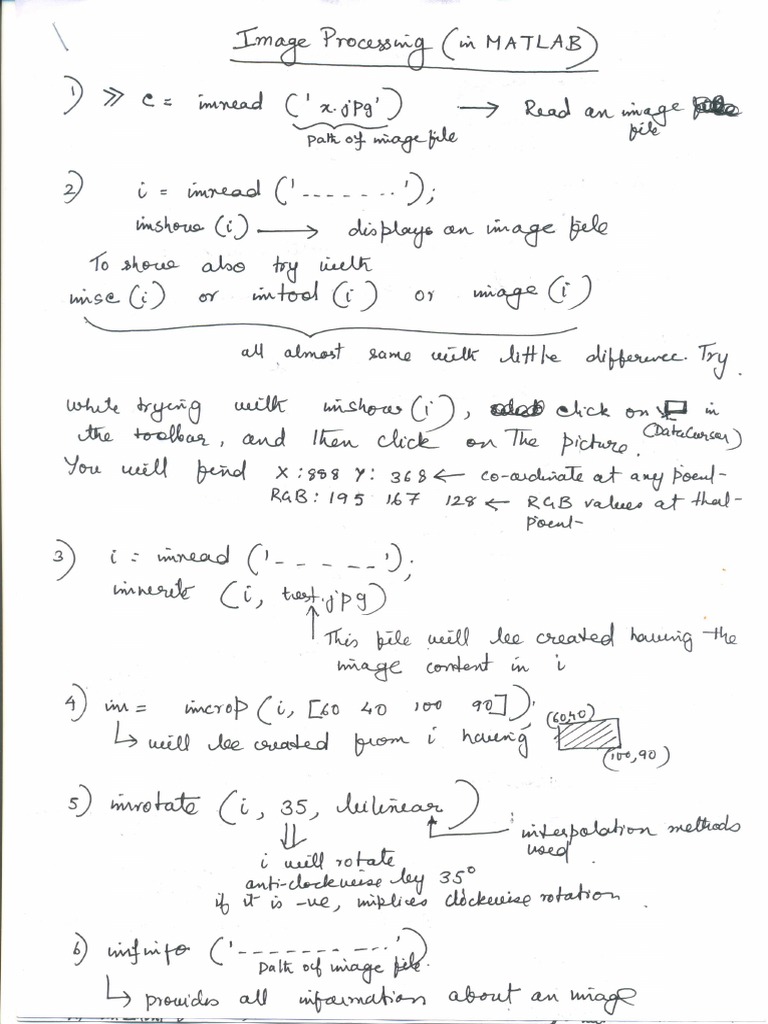 Image Processing (in MATLAB)
1) >> c = imread ('x.jpg') → Read an image file
path of image file
2) i = imread ('-------');
imshow (i) → displays an image file
To show also try with
imsc (i) or imtool (i) or image (i)
all almost same with little difference. Try.
While trying with imshow (i), click on in
the toolbar, and then click on The picture. (DataCursor)
You will find X : 888 Y : 368 ← co-ordinate at any point
RGB : 195 167 128 ← RGB values at that
point
3) i = imread ('- - - - -');
imwrite (i, test.jpg)
This file will be created having the
image content in i
4) im = imcrop (i, [60 40 100 90]);
(60,40)
will be created from i having
(100,90)
5) imrotate (i, 35, bilinear)
interpolation methods
used
i will rotate
anti-clockwise by 35°
if it is -ve, implices clockwise rotation
6) imfinfo ('-----------')
path of image file.
provides all information about an image